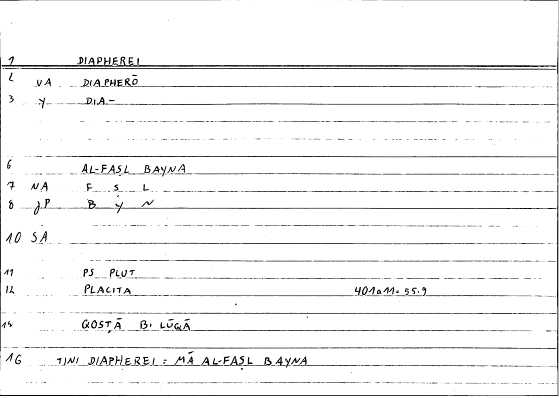 1 DIAPHEREI
2 VA DIAPHERŌ
3 Y DIA-
6 AL-FAṢL BAYNA
7 NA F Ṣ L
8 JP B Y N
10 SA
11 PS PLUT
12 PLACITA 401a11. 55.9
14 QOSṬĀ B. LŪQĀ
16 TINI DIAPHEREI : MĀ AL-FAṢL BAYNA